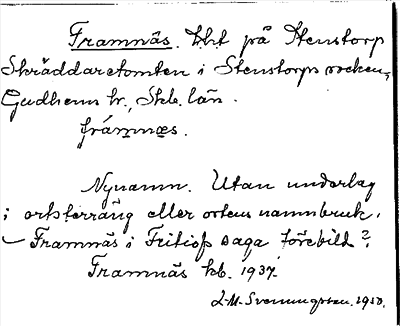 Framnäs. Lht på Stenstorp
Skräddaretomten i Stenstorps socken,
Gudhems hr, Skb. län.
frámnæs.
Nynamn. Utan underlag
i ortsterräng eller ortens namnbruk.
– Framnäs i Fritiofs saga förebild?
Framnäs kb. 1937.
L-M. Svenungsson. 1950.